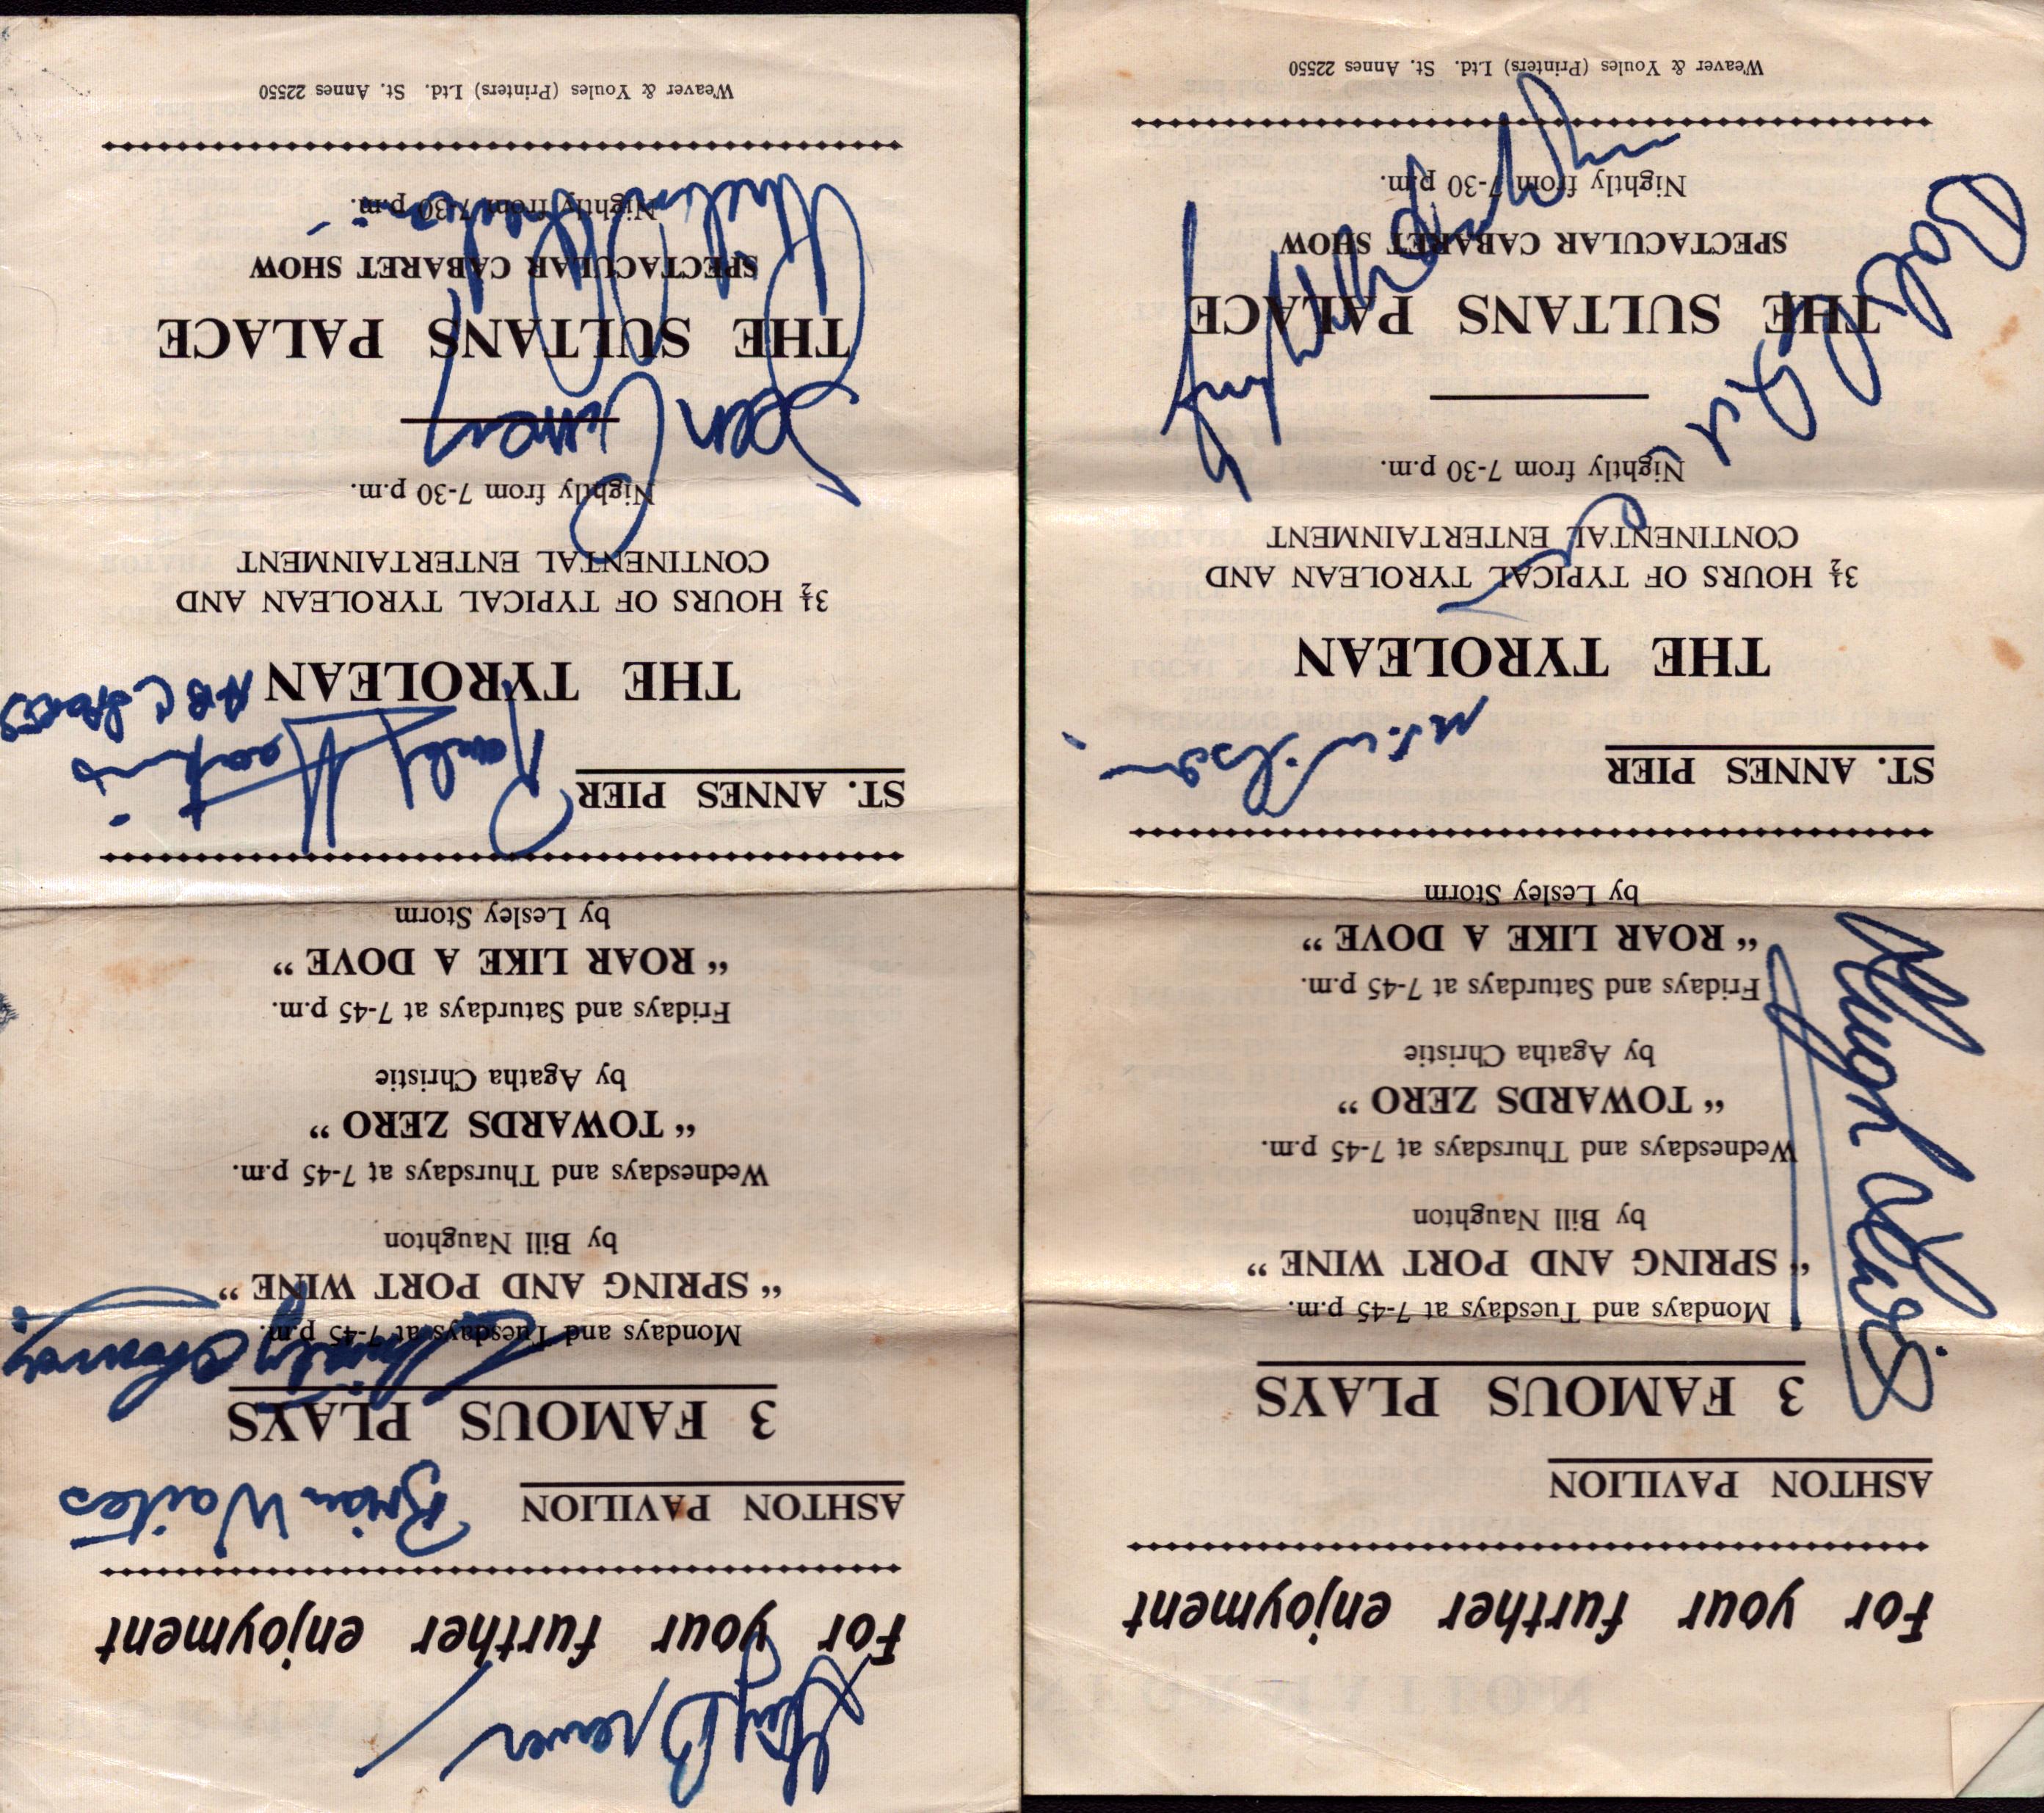 For your further enjoyment
ASHTON PAVILION
3 FAMOUS PLAYS
Hugh Lewis
Mondays and Tuesdays at 7-45 p.m.
“ SPRING AND PORT WINE ”
by Bill Naughton
Wednesdays and Thursdays at 7-45 p.m.
“ TOWARDS ZERO ”
by Agatha Christie
Fridays and Saturdays at 7-45 p.m.
“ ROAR LIKE A DOVE ”
by Lesley Storm
ST. ANNES PIER
THE TYROLEAN
3½ HOURS OF TYPICAL TYROLEAN AND
CONTINENTAL ENTERTAINMENT
Nightly from 7-30 p.m.
THE SULTANS PALACE
SPECTACULAR CABARET SHOW
Nightly from 7-30 p.m.
Weaver & Youles (Printers) Ltd. St. Annes 22550
Gay Brewer
For your further enjoyment
ASHTON PAVILION
Brian Waites
3 FAMOUS PLAYS
Mondays and Tuesdays at 7-45 p.m.
“ SPRING AND PORT WINE ”
by Bill Naughton
Wednesdays and Thursdays at 7-45 p.m.
“ TOWARDS ZERO ”
by Agatha Christie
Fridays and Saturdays at 7-45 p.m.
“ ROAR LIKE A DOVE ”
by Lesley Storm
ST. ANNES PIER
THE TYROLEAN
3½ HOURS OF TYPICAL TYROLEAN AND
CONTINENTAL ENTERTAINMENT
Nightly from 7-30 p.m.
THE SULTANS PALACE
SPECTACULAR CABARET SHOW
Nightly from 7-30 p.m.
Weaver & Youles (Printers) Ltd. St. Annes 22550